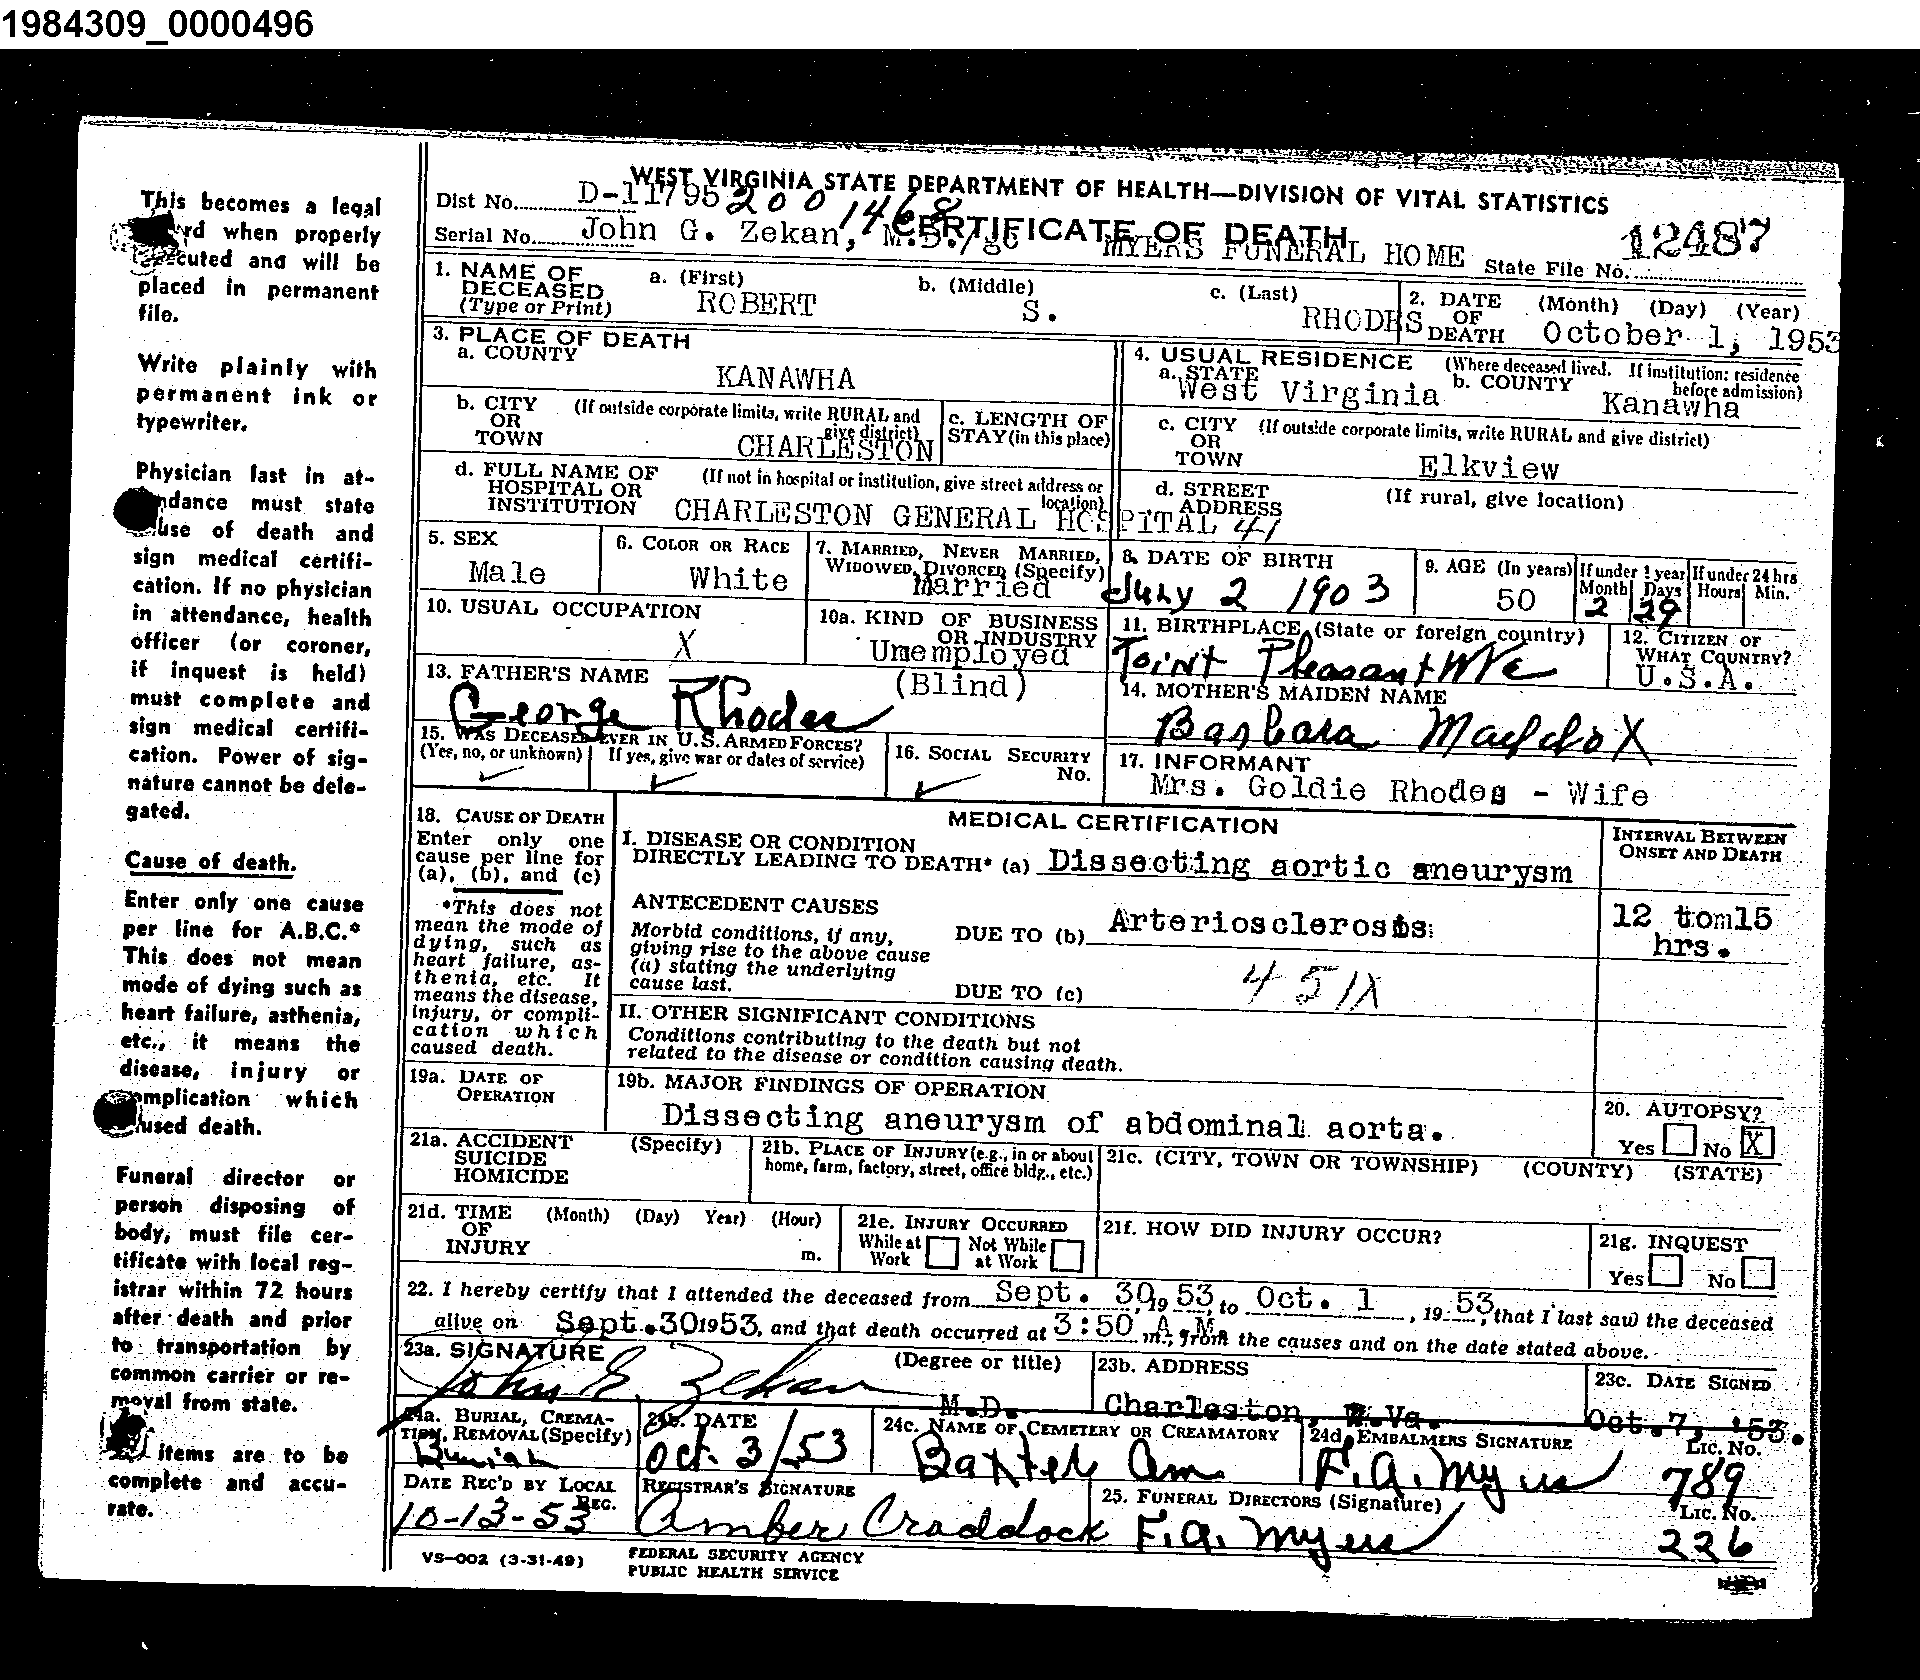 1984309_0000496
This becomes a legal
rd when properly
cuted and will be
placed in permanent
file.
Write plainly with
permanent ink or
typewriter.
Physician last in at-
ndance must state
use of death and
sign medical certifi-
cation. If no physician
in attendance, health
officer (or coroner,
if inquest is held)
must complete and
sign medical certifi-
cation. Power of sig-
nature cannot be dele-
gated.
Cause of death.
Enter only one cause
per line for A.B.C.*
This does not mean
mode of dying such as
heart failure, asthenia,
etc., it means the
disease, injury or
omplication which
used death.
Funeral director or
person disposing of
body, must file cer-
tificate with local reg-
istrar within 72 hours
after death and prior
to transportation by
common carrier or re-
moval from state.
items are to be
complete and accu-
rate.
WEST VIRGINIA STATE DEPARTMENT OF HEALTH—DIVISION OF VITAL STATISTICS
Dist No. D-11795 200 1468
CERTIFICATE OF DEATH
Serial No. John G. Zekan, M.D./gc MYERS FUNERAL HOME State File No. 12487
1. NAME OF DECEASED (Type or Print) a. (First) b. (Middle) c. (Last)
ROBERT S. RHODES
2. DATE OF DEATH (Month) (Day) (Year)
October 1, 1953
3. PLACE OF DEATH
a. COUNTY
KANAWHA
4. USUAL RESIDENCE (Where deceased lived. If institution: residence before admission)
a. STATE West Virginia b. COUNTY Kanawha
b. CITY OR TOWN (If outside corporate limits, write RURAL and give district)
CHARLESTON
c. LENGTH OF STAY (in this place)
c. CITY OR TOWN (If outside corporate limits, write RURAL and give district)
Elkview
d. FULL NAME OF HOSPITAL OR INSTITUTION (If not in hospital or institution, give street address or location)
CHARLESTON GENERAL HOSPITAL 41
d. STREET ADDRESS (If rural, give location)
5. SEX
Male
6. COLOR OR RACE
White
7. MARRIED, NEVER MARRIED, WIDOWED, DIVORCED (Specify)
Married
8. DATE OF BIRTH
July 2 1903
9. AGE (In years)
50
If under 1 year Month Days
2 29
If under 24 hrs Hours Min.
10. USUAL OCCUPATION
X
10a. KIND OF BUSINESS OR INDUSTRY
Unemployed
(Blind)
11. BIRTHPLACE (State or foreign country)
Point Pleasant WVa
12. CITIZEN OF WHAT COUNTRY?
U.S.A.
13. FATHER'S NAME
George Rhodes
14. MOTHER'S MAIDEN NAME
Barbara Maddox
15. WAS DECEASED EVER IN U.S. ARMED FORCES?
(Yes, no, or unknown) If yes, give war or dates of service)
16. SOCIAL SECURITY No.
17. INFORMANT
Mrs. Goldie Rhodes - Wife
18. CAUSE OF DEATH
Enter only one
cause per line for
(a), (b), and (c)
*This does not
mean the mode of
dying, such as
heart failure, as-
thenia, etc. It
means the disease,
injury, or compli-
cation which
caused death.
MEDICAL CERTIFICATION
INTERVAL BETWEEN ONSET AND DEATH
I. DISEASE OR CONDITION
DIRECTLY LEADING TO DEATH* (a) Dissecting aortic aneurysm
ANTECEDENT CAUSES
Morbid conditions, if any,
giving rise to the above cause
(a) stating the underlying
cause last.
DUE TO (b) Arteriosclerosis
12 tom15
hrs.
DUE TO (c) 451X
II. OTHER SIGNIFICANT CONDITIONS
Conditions contributing to the death but not
related to the disease or condition causing death.
19a. DATE OF OPERATION
19b. MAJOR FINDINGS OF OPERATION
Dissecting aneurysm of abdominal aorta.
20. AUTOPSY?
Yes No X
21a. ACCIDENT SUICIDE HOMICIDE (Specify)
21b. PLACE OF INJURY (e.g., in or about home, farm, factory, street, office bldg., etc.)
21c. (CITY, TOWN OR TOWNSHIP) (COUNTY) (STATE)
21d. TIME OF INJURY (Month) (Day) Year) (Hour) m.
21e. INJURY OCCURRED
While at Work Not While at Work
21f. HOW DID INJURY OCCUR?
21g. INQUEST
Yes No
22. I hereby certify that I attended the deceased from Sept. 30, 19 53, to Oct. 1, 19 53, that I last saw the deceased
alive on Sept. 30 1953, and that death occurred at 3:50 A.M m., from the causes and on the date stated above.
23a. SIGNATURE (Degree or title)
John G. Zekan M.D.
23b. ADDRESS
Charleston, W.Va.
23c. DATE SIGNED
Oct.7, '53.
24a. BURIAL, CREMATION, REMOVAL (Specify)
Burial
24b. DATE
Oct. 3/53
24c. NAME OF CEMETERY OR CREAMATORY
Baxter Cem
24d. EMBALMERS SIGNATURE Lic. No.
F.A. Myers 789
DATE REC'D BY LOCAL REG.
10-13-53
REGISTRAR'S SIGNATURE
Amber Craddock
25. FUNERAL DIRECTORS (Signature) Lic. No.
F.A. Myers 226
VS-002 (3-31-49)
FEDERAL SECURITY AGENCY
PUBLIC HEALTH SERVICE